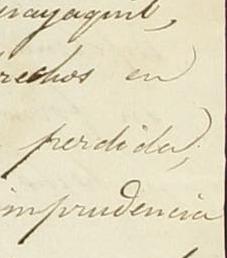 uayaquil,
rechos en
perdida;
imprudencia